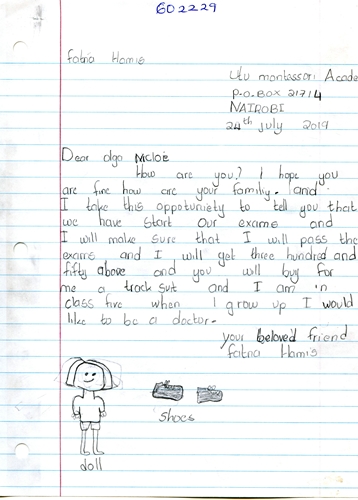 602229
fatna Hamis
Utu montassori Acade
P.O.BOX 21714
NAIROBI
24th july 2019
Dear olga Mcloe
How are you? I hope you
are fine how are your familiy. and
I take this oppotuniety to tell you that
we have start our exams and
I will make sure that I will pass the
exams and I will get three hundred and
fifty above and you will buy for
me a track suit and I am in
class five when I grow up I would
like to be a doctor.
your beloved friend
fatna Hamis
shoes
doll